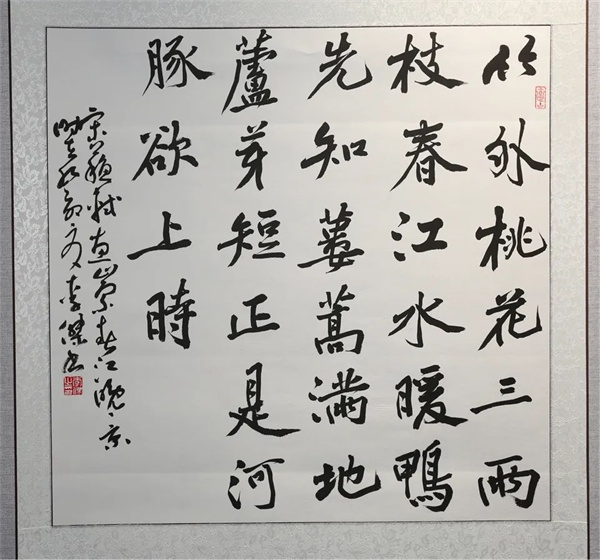 竹外桃花三兩
枝春江水暖鴨
先知蔞蒿滿地
蘆芽短正是河
豚欲上時
宋蘇軾惠崇春江晚景
李傑書